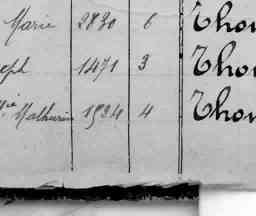 Marie 2830 6 Thou
eph 1471 3 Thou
Mathurin 1934 4 Thou